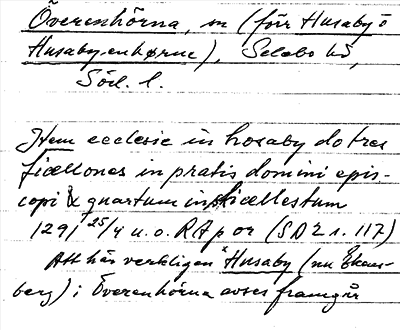 Överenhörna, sn (förr Husaby ö
Husaby-enhørne), Selebo hd,
Södl. l.
Item ecclesie in hosaby do tres
ficellones in pratis domini epis-
copi & quartum in
1291 25/4 u.o. RAp or (SD 2 s. 117)
Att här verkligen Husaby (nu Ekens-
berg) i Överenhörna avses framgår